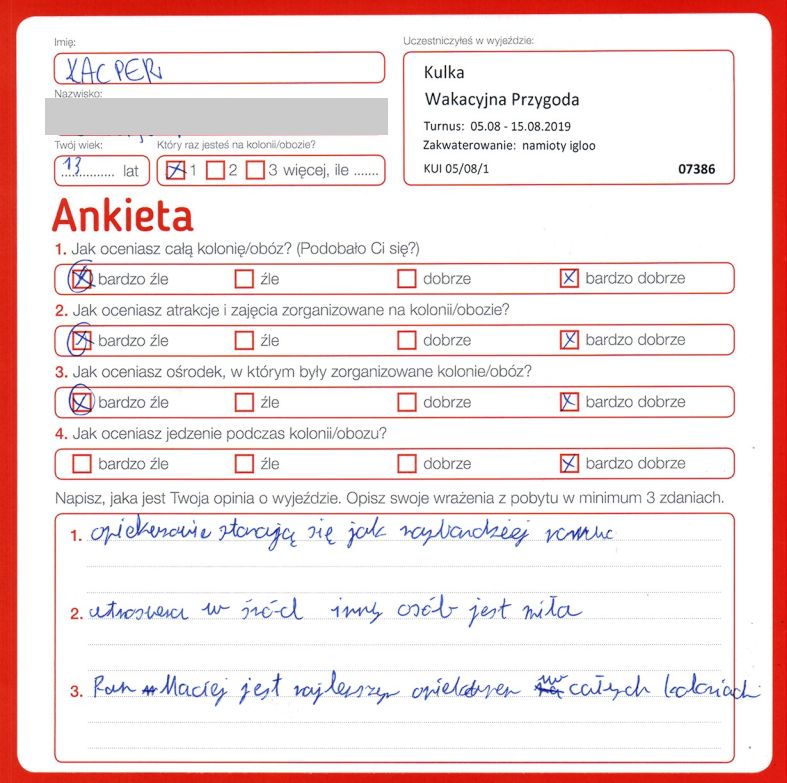 Imię:
KACPER
Uczestniczyłeś w wyjeździe:
Kulka
Wakacyjna Przygoda
Turnus: 05.08 - 15.08.2019
Zakwaterowanie: namioty igloo
KUI 05/08/1 07386
Nazwisko:
Twój wiek:
13 lat
Który raz jesteś na kolonii/obozie?
1 2 3 więcej, ile .......
Ankieta
1. Jak oceniasz całą kolonię/obóz? (Podobało Ci się?)
bardzo źle źle dobrze bardzo dobrze
2. Jak oceniasz atrakcje i zajęcia zorganizowane na kolonii/obozie?
bardzo źle źle dobrze bardzo dobrze
3. Jak oceniasz ośrodek, w którym były zorganizowane kolonie/obóz?
bardzo źle źle dobrze bardzo dobrze
4. Jak oceniasz jedzenie podczas kolonii/obozu?
bardzo źle źle dobrze bardzo dobrze
Napisz, jaka jest Twoja opinia o wyjeździe. Opisz swoje wrażenia z pobytu w minimum 3 zdaniach.
1. opiekunowie starają się jak najbardziej
2. w śród inny osób jest miła
3. Pan Maciej jest najlepszym opiekunem w całych koloniach